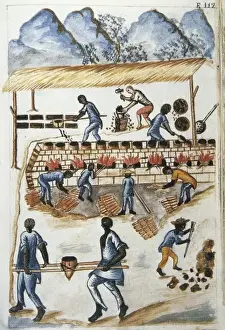 E 112